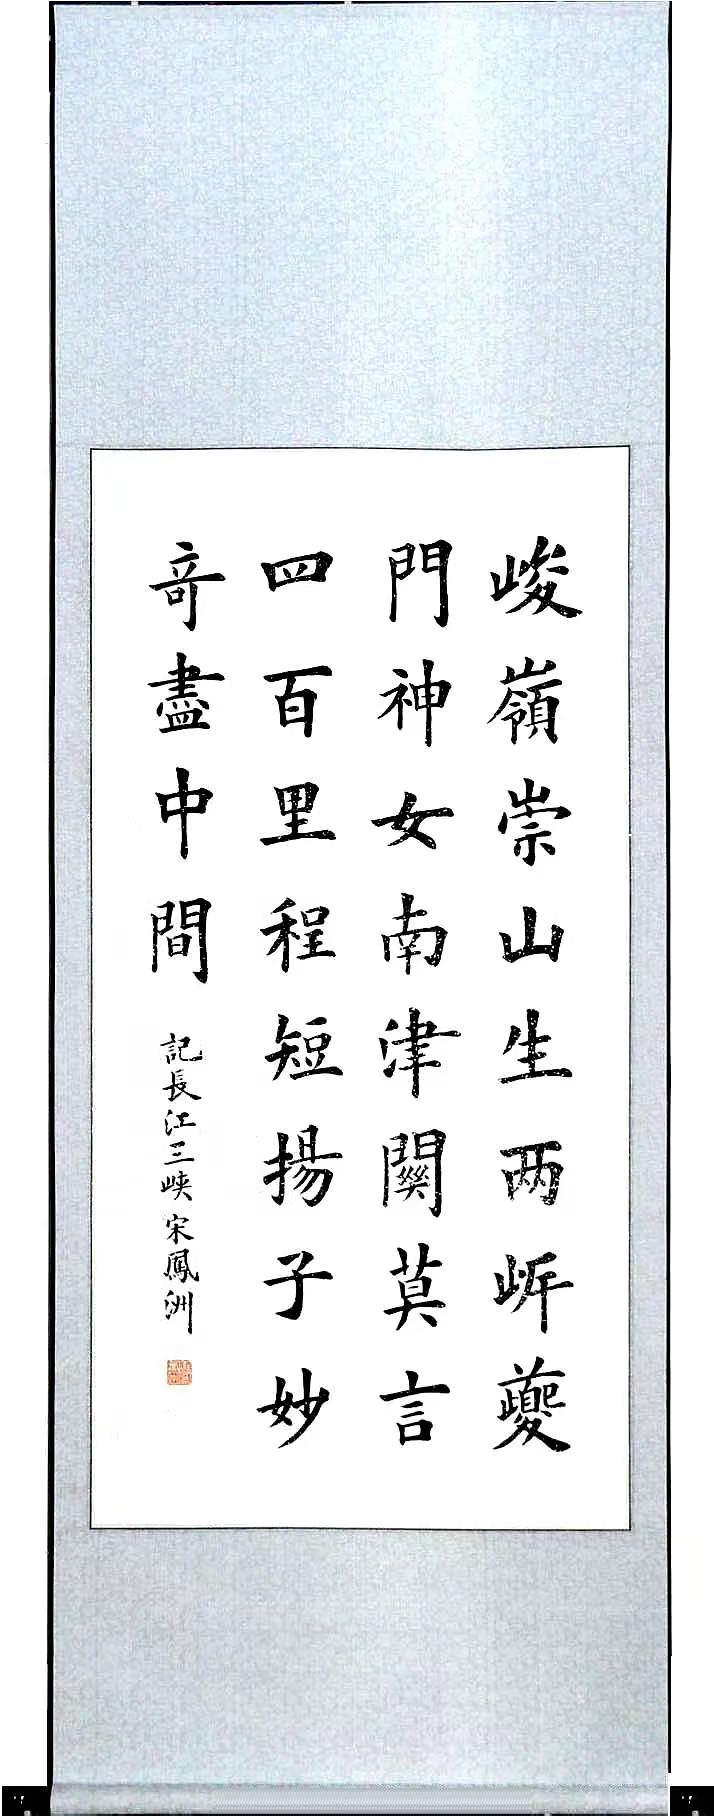 峻嶺崇山生两岸夔
門神女南津関莫言
四百里程短揚子妙
竒盡中間
記長江三峡宋鳳洲